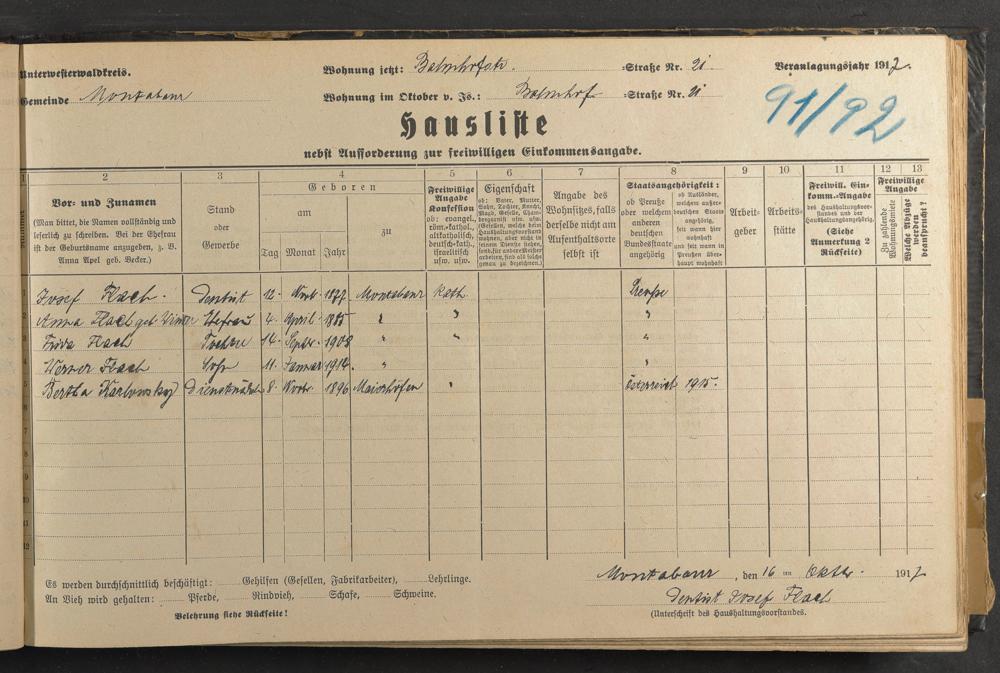 Unterwesterwaldkreis. Wohnung jetzt: Bahnhofstr. Straße Nr. 21 Veranlagungsjahr 1917.
Gemeinde Montabaur Wohnung im Oktober v. Js.: Bahnhof Straße Nr. 21
91/92
Hausliste
nebst Aufforderung zur freiwilligen Einkommensangabe.
1 2 3 4 5 6 7 8 9 10 11 12 13
Vor- und Zunamen
(Man bittet, die Namen vollständig und
leserlich zu schreiben. Bei der Ehefrau
ist der Geburtsname anzugeben, z. B.
Anna Apel geb. Becker.)
Stand
oder
Gewerbe
Geboren
am
zu
Tag Monat Jahr
Freiwillige
Angabe
Konfession
ob: evangel.,
röm.-kathol.,
altkatholisch,
deutsch-kath.,
israelitisch
usw. usw.
Eigenschaft
ob: Vater, Mutter,
Sohn, Tochter, Knecht,
Magd, Geselle, Cham-
bregarnist usw. usw.
(Gesellen, welche beim
Haushaltungsvorstand
wohnen, aber nicht in
seinem Dienste stehen,
sond. für andere Meister
arbeiten, sind als solche
genau zu bezeichnen.)
Angabe des
Wohnsitzes, falls
derselbe nicht am
Aufenthaltsorte
selbst ist
Staatsangehörigkeit:
ob Preuße
oder welchem
anderen
deutschen
Bundesstaate
angehörig
ob Ausländer,
welchem außer-
deutschen Staate
angehörig,
seit wann hier
wohnhaft
und seit wann in
Preußen über-
haupt wohnhaft
Arbeit-
geber
Arbeits-
stätte
Freiwill. Ein-
komm.-Angabe
des Haushaltungsvor-
standes und der
Haushaltungsangehörig.
(Siehe
Anmerkung 2
Rückseite)
Freiwillige
Angabe
Zu zahlende
Wohnungsmiete
Welche Abzüge
werden
beansprucht?
1 Josef Flach. Dentist 12. Novb. 1877 Montabaur Kath. Preuße
2 Anna Flach geb. Ehefrau 4. April 1885 " " "
3 Frida Flach Tochter 14. Septr. 1908 " " "
4 Werner Flach Sohn 11. Januar 1914. " "
5 Bertha Karlowsky Dienstmädch 8. Novbr. 1896 " Österreich 1915.
6
7
8
9
10
11
12
Es werden durchschnittlich beschäftigt: Gehilfen (Gesellen, Fabrikarbeiter), Lehrlinge.
An Vieh wird gehalten: Pferde, Rindvieh, Schafe, Schweine.
Belehrung siehe Rückseite!
Montabaur, den 16 ten Oktbr. 1917
Dentist Josef Flach
(Unterschrift des Haushaltungsvorstandes.